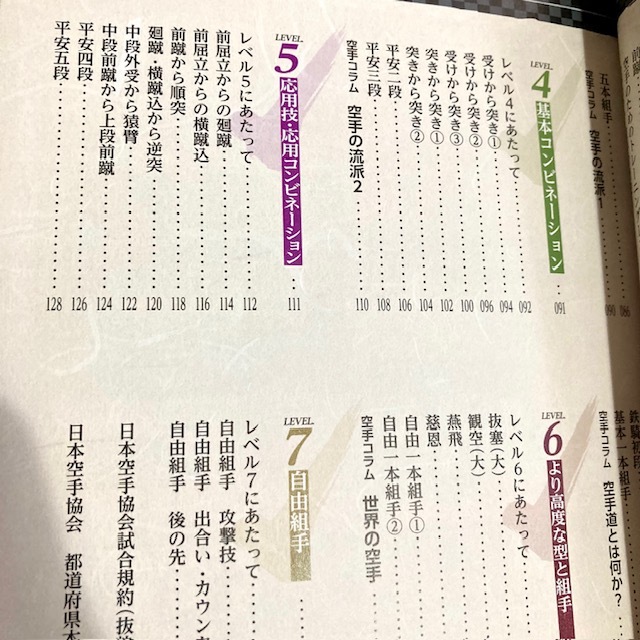 五本組手 ‥‥ 086
空手コラム 空手の流派1 ‥‥ 090
LEVEL. 4 基本コンビネーション ‥‥ 091
レベル4にあたって ‥‥ 092
受けから突き① ‥‥ 094
受けから突き② ‥‥ 096
受けから突き③ ‥‥ 100
突きから突き① ‥‥ 102
突きから突き② ‥‥ 104
平安二段 ‥‥ 106
平安三段 ‥‥ 108
空手コラム 空手の流派2 ‥‥ 110
LEVEL. 5 応用技・応用コンビネーション ‥‥ 111
レベル5にあたって ‥‥ 112
前屈立からの廻蹴 ‥‥ 114
前屈立からの横蹴込 ‥‥ 116
前蹴から順突 ‥‥ 118
廻蹴・横蹴込から逆突 ‥‥ 120
中段外受から猿臂 ‥‥ 122
中段前蹴から上段前蹴 ‥‥ 124
平安四段 ‥‥ 126
平安五段 ‥‥ 128
鉄騎初段
基本一本組手
空手コラム 空手道とは何か?
LEVEL. 6 より高度な型と組手
レベル6にあたって
抜塞(大)
観空(大)
燕飛
慈恩
自由一本組手①
自由一本組手②
空手コラム 世界の空手
LEVEL. 7 自由組手
レベル7にあたって
自由組手 攻撃技
自由組手 出合い・カウン
自由組手 後の先
日本空手協会試合規約(抜
日本空手協会 都道府県本